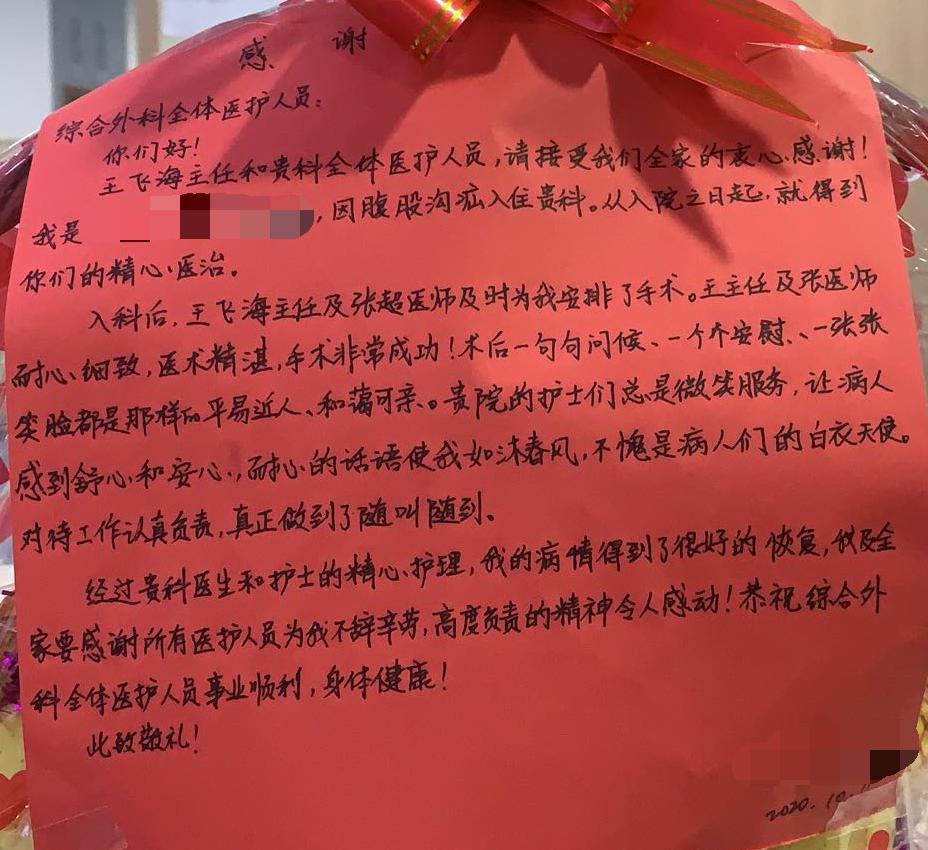 感 谢
综合外科全体医护人员：
你们好！
王飞海主任和贵科全体医护人员，请接受我们全家的衷心感谢！
我是 ，因腹股沟疝入住贵科。从入院之日起，就得到
你们的精心医治。
入科后，王飞海主任及张超医师及时为我安排了手术。王主任及张医师
耐心、细致，医术精湛，手术非常成功！术后一句句问候、一个个安慰、一张张
笑脸都是那样的平易近人、和蔼可亲。贵院的护士们总是微笑服务，让病人
感到舒心和安心，耐心的话语使我如沐春风，不愧是病人们的白衣天使。
对待工作认真负责，真正做到了随叫随到。
经过贵科医生和护士的精心护理，我的病情得到了很好的恢复，我及全
家要感谢所有医护人员为我不辞辛劳，高度负责的精神令人感动！恭祝综合外
科全体医护人员事业顺利，身体健康！
此致敬礼！
2020.10.